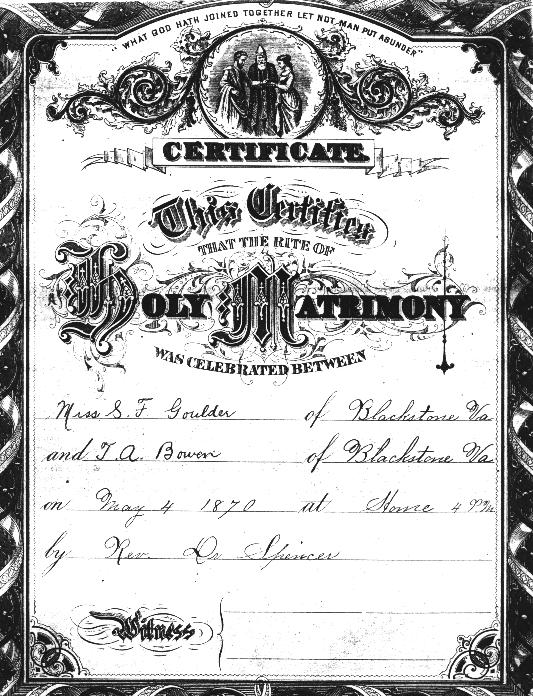 "WHAT GOD HATH JOINED TOGETHER LET NOT MAN PUT ASUNDER"
CERTIFICATE.
This Certifies
THAT THE RITE OF
HOLY MATRIMONY
WAS CELEBRATED BETWEEN
Miss S. F Goulder of Blackstone Va
and T. A. Bowen of Blackstone Va
on May 4 1870 at Home 4 P.M.
by Rev. Dr Spencer
Witness